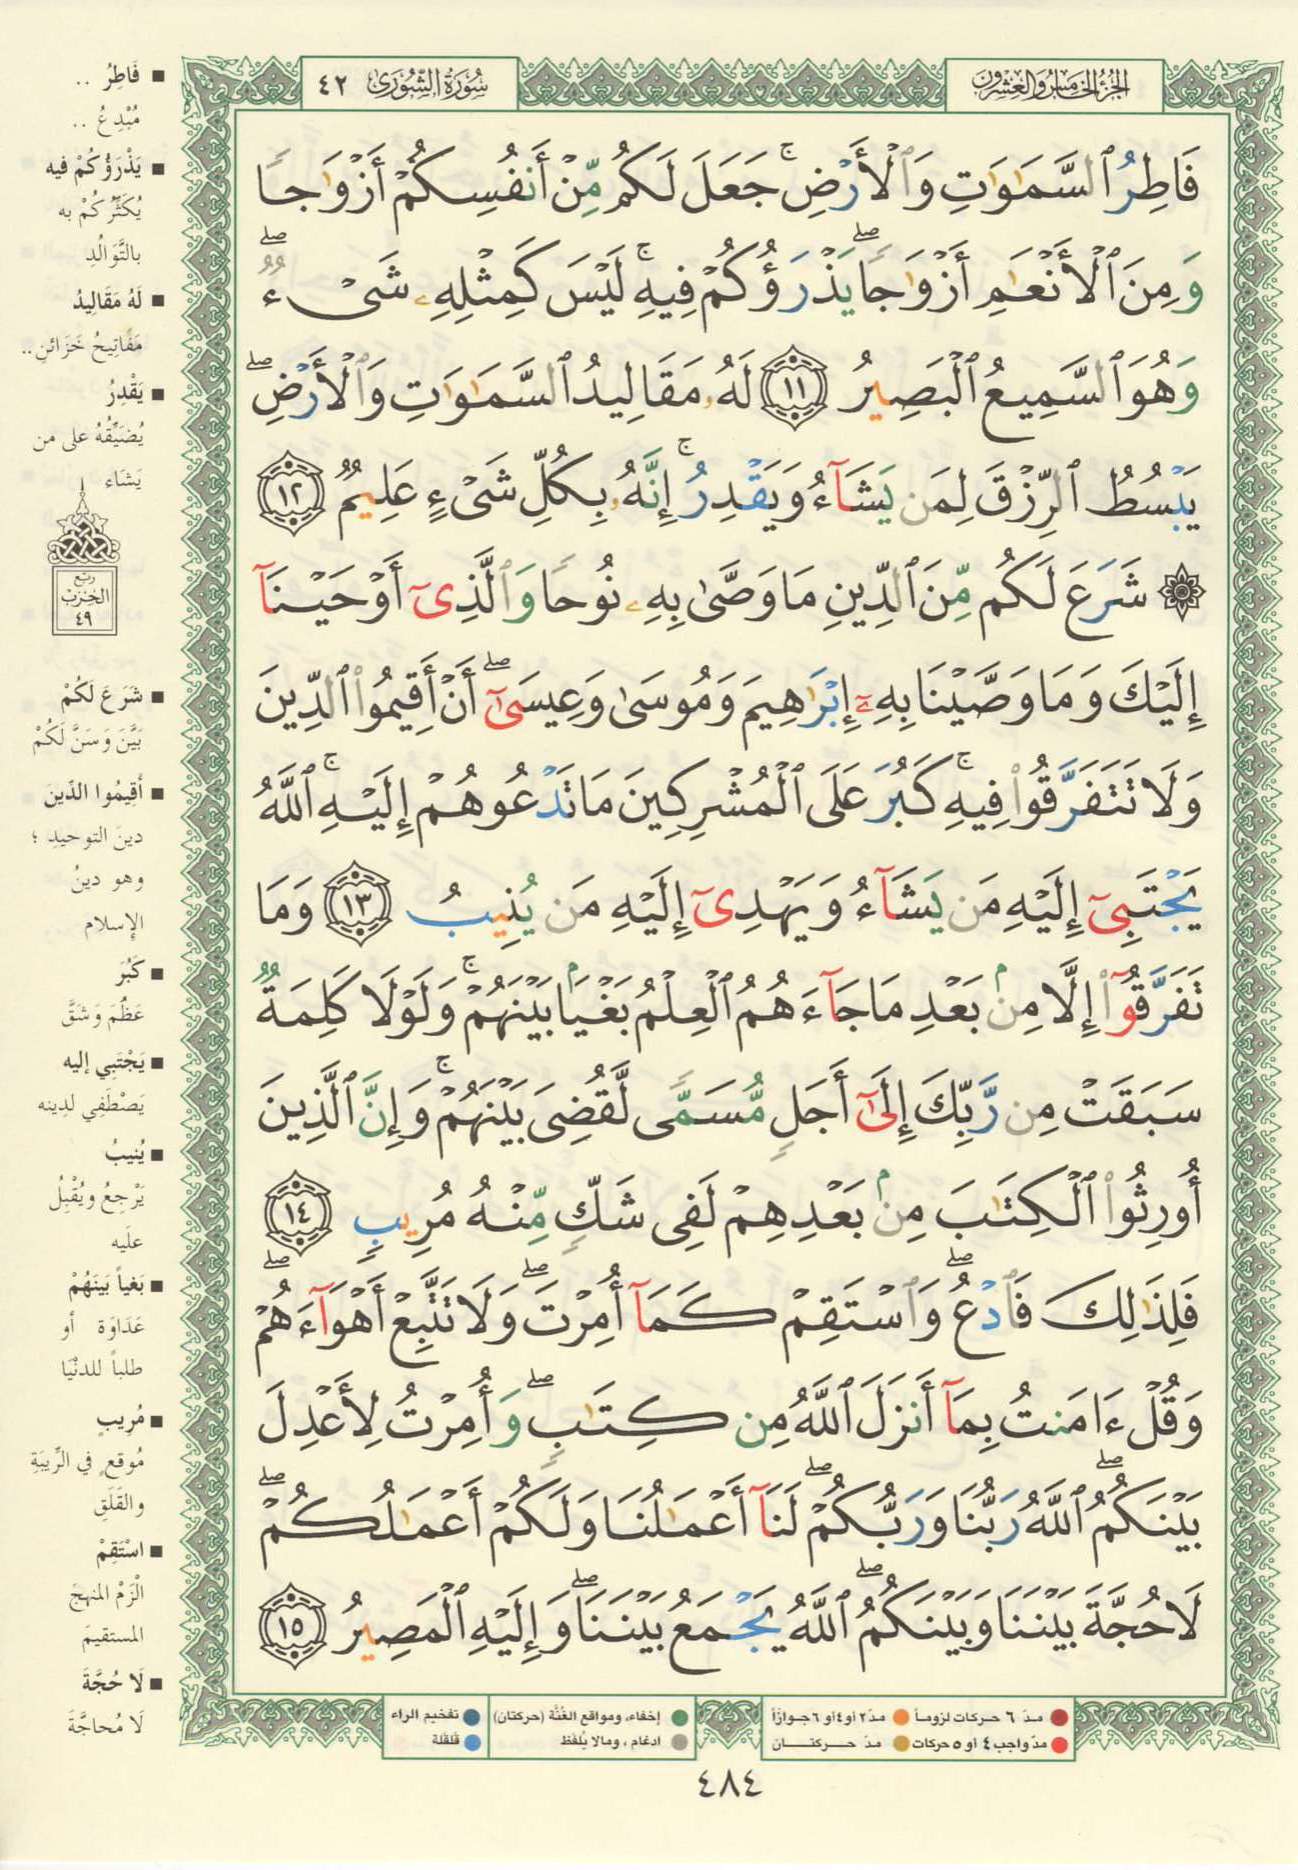 الجزء الخامس والعشرون
سُورَةُ الشُّورَىٰ ٤٢
فَاطِرُ ٱلسَّمَٰوَٰتِ وَٱلْأَرْضِ ۚ جَعَلَ لَكُم مِّنْ أَنفُسِكُمْ أَزْوَٰجًا
وَمِنَ ٱلْأَنْعَٰمِ أَزْوَٰجًا ۖ يَذْرَؤُكُمْ فِيهِ ۚ لَيْسَ كَمِثْلِهِۦ شَىْءٌ ۖ
وَهُوَ ٱلسَّمِيعُ ٱلْبَصِيرُ ١١ لَهُۥ مَقَالِيدُ ٱلسَّمَٰوَٰتِ وَٱلْأَرْضِ ۖ
يَبْسُطُ ٱلرِّزْقَ لِمَن يَشَآءُ وَيَقْدِرُ ۚ إِنَّهُۥ بِكُلِّ شَىْءٍ عَلِيمٌ ١٢
۞ شَرَعَ لَكُم مِّنَ ٱلدِّينِ مَا وَصَّىٰ بِهِۦ نُوحًا وَٱلَّذِىٓ أَوْحَيْنَآ
إِلَيْكَ وَمَا وَصَّيْنَا بِهِۦٓ إِبْرَٰهِيمَ وَمُوسَىٰ وَعِيسَىٰٓ ۖ أَنْ أَقِيمُوا۟ ٱلدِّينَ
وَلَا تَتَفَرَّقُوا۟ فِيهِ ۚ كَبُرَ عَلَى ٱلْمُشْرِكِينَ مَا تَدْعُوهُمْ إِلَيْهِ ۚ ٱللَّهُ
يَجْتَبِىٓ إِلَيْهِ مَن يَشَآءُ وَيَهْدِىٓ إِلَيْهِ مَن يُنِيبُ ١٣ وَمَا
تَفَرَّقُوٓا۟ إِلَّا مِنۢ بَعْدِ مَا جَآءَهُمُ ٱلْعِلْمُ بَغْيًۢا بَيْنَهُمْ ۚ وَلَوْلَا كَلِمَةٌ
سَبَقَتْ مِن رَّبِّكَ إِلَىٰٓ أَجَلٍ مُّسَمًّى لَّقُضِىَ بَيْنَهُمْ ۚ وَإِنَّ ٱلَّذِينَ
أُورِثُوا۟ ٱلْكِتَٰبَ مِنۢ بَعْدِهِمْ لَفِى شَكٍّ مِّنْهُ مُرِيبٍ ١٤
فَلِذَٰلِكَ فَٱدْعُ ۖ وَٱسْتَقِمْ كَمَآ أُمِرْتَ ۖ وَلَا تَتَّبِعْ أَهْوَآءَهُمْ ۖ
وَقُلْ ءَامَنتُ بِمَآ أَنزَلَ ٱللَّهُ مِن كِتَٰبٍ ۖ وَأُمِرْتُ لِأَعْدِلَ
بَيْنَكُمُ ۖ ٱللَّهُ رَبُّنَا وَرَبُّكُمْ ۖ لَنَآ أَعْمَٰلُنَا وَلَكُمْ أَعْمَٰلُكُمْ ۖ
لَا حُجَّةَ بَيْنَنَا وَبَيْنَكُمُ ۖ ٱللَّهُ يَجْمَعُ بَيْنَنَا ۖ وَإِلَيْهِ ٱلْمَصِيرُ ١٥
■ فَاطِرُ ..
مُبْدِعُ ..
■ يَذْرَؤُكُمْ فيه
يُكَثِّرُكُمْ به
بالتَّوَالُدِ
■ لَهُ مَقَالِيدُ
مَفَاتِيحُ خَزَائنِ ..
■ يَقْدِرُ
يُضَيِّقُهُ على من
يَشَاء
ربع
الحزب
٤٩
■ شَرَعَ لَكُمْ
بَيَّنَ وَسَنَّ لَكُمْ
■ أَقِيمُوا الدِّينَ
دينَ التوحيدِ ؛
وهو دينُ
الإِسلام
■ كَبُرَ
عَظُمَ وَشَقَّ
■ يَجْتَبِي إليه
يَصْطَفِي لدِينه
■ يُنِيبُ
يَرْجِعُ ويُقْبِلُ
علَيه
■ بَغياً بَينَهُمْ
عَدَاوَة أو
طلباً للدنْيَا
■ مُرِيبٍ
مُوقعٍ في الرِّيبَةِ
والقَلَقِ
■ اسْتَقِمْ
الْزَمْ المنهجَ
المستقيمَ
■ لَا حُجَّةَ
لَا مُحاجَّةَ
مدّ ٦ حركات لزوماً
مدّ ٢ أو ٤ أو ٦ جوازاً
مدّ واجب ٤ أو ٥ حركات
مدّ حركتـــان
إخفاء، ومواقع الغُنَّة (حركتان)
ادغام ، ومالا يُلفَظ
تفخيم الراء
قلقلة
٤٨٤